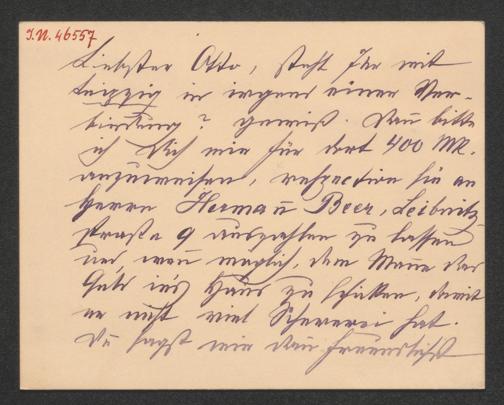 I.N. 46557
Liebster Otto, steht Ihr mit
Leipzig in irgend einer Ver-
bindung? gewiß. Dann bitte
ich Dich mir für dort 400 Mk.
anzuweisen, respective sie an
Herrn Hermann Beer, Leibnitz-
straße 9 auszahlen zu lassen
und, wenn möglich, dem Manne das
Geld in's Haus zu schicken, damit
er nicht viel Schererei hat.
Du sagst mir dann freundlichst